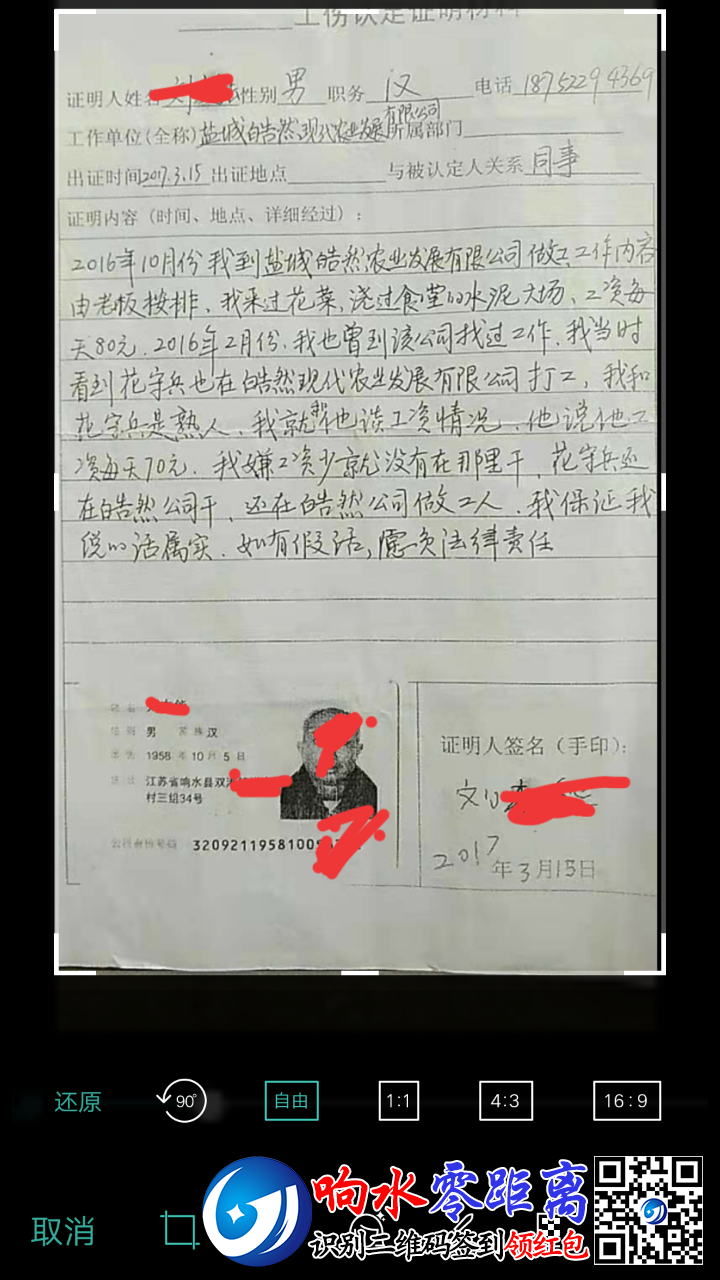 工伤认定证明材料
证明人姓名 性别 男 职务 汉 电话 18752294369
有限公司
工作单位(全称)盐城皓然现代农业发展所属部门
出证时间2017.3.15 出证地点 与被认定人关系 同事
证明内容(时间、地点、详细经过):
2016年10月份我到盐城皓然农业发展有限公司做工工作内容
由老板按排、我采过花菜,浇过食堂的水泥大场、工资每
天80元.2016年2月份.我也曾到该公司找过工作.我当时
看到花守兵也在皓然现代农业发展有限公司打工,我和
花守兵是熟人、我就和他谈工资情况.他说他工
资每天70元.我嫌工资少就没有在那里干,花守兵还
在皓然公司干、还在皓然公司做工人.我保证我
说的话属实.如有假话,愿负法律责任
男 民族 汉
1958 年 10 月 5 日
江苏省响水县双
村三组34号
公民身份号码 32092119581005
证明人签名(手印):
2017年3月15日
还原
90°
自由
1:1
4:3
16:9
取消
响水零距离
识别二维码签到领红包